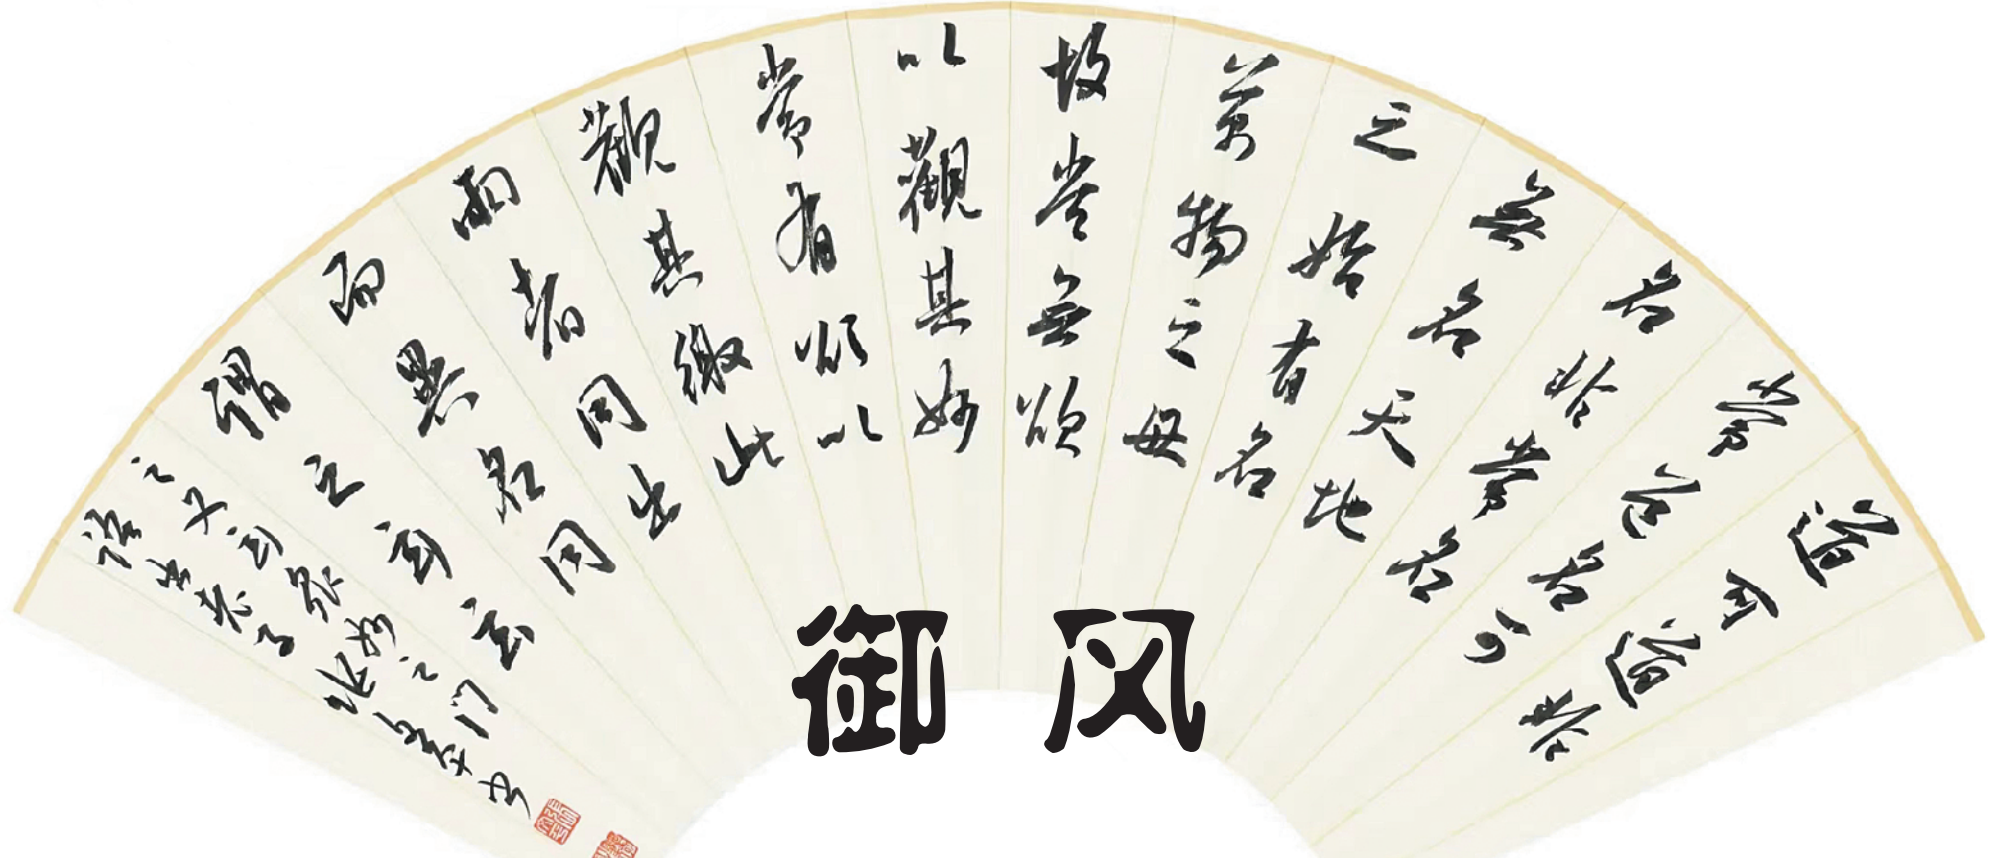 道可道非
常道名可
名非常名
無名天地
之始有名
萬物之母
故常無欲
以觀其妙
常有欲以
觀其繳此
兩者同出
而異名同
謂之玄玄
之又玄眾妙之门
語出老子
御风